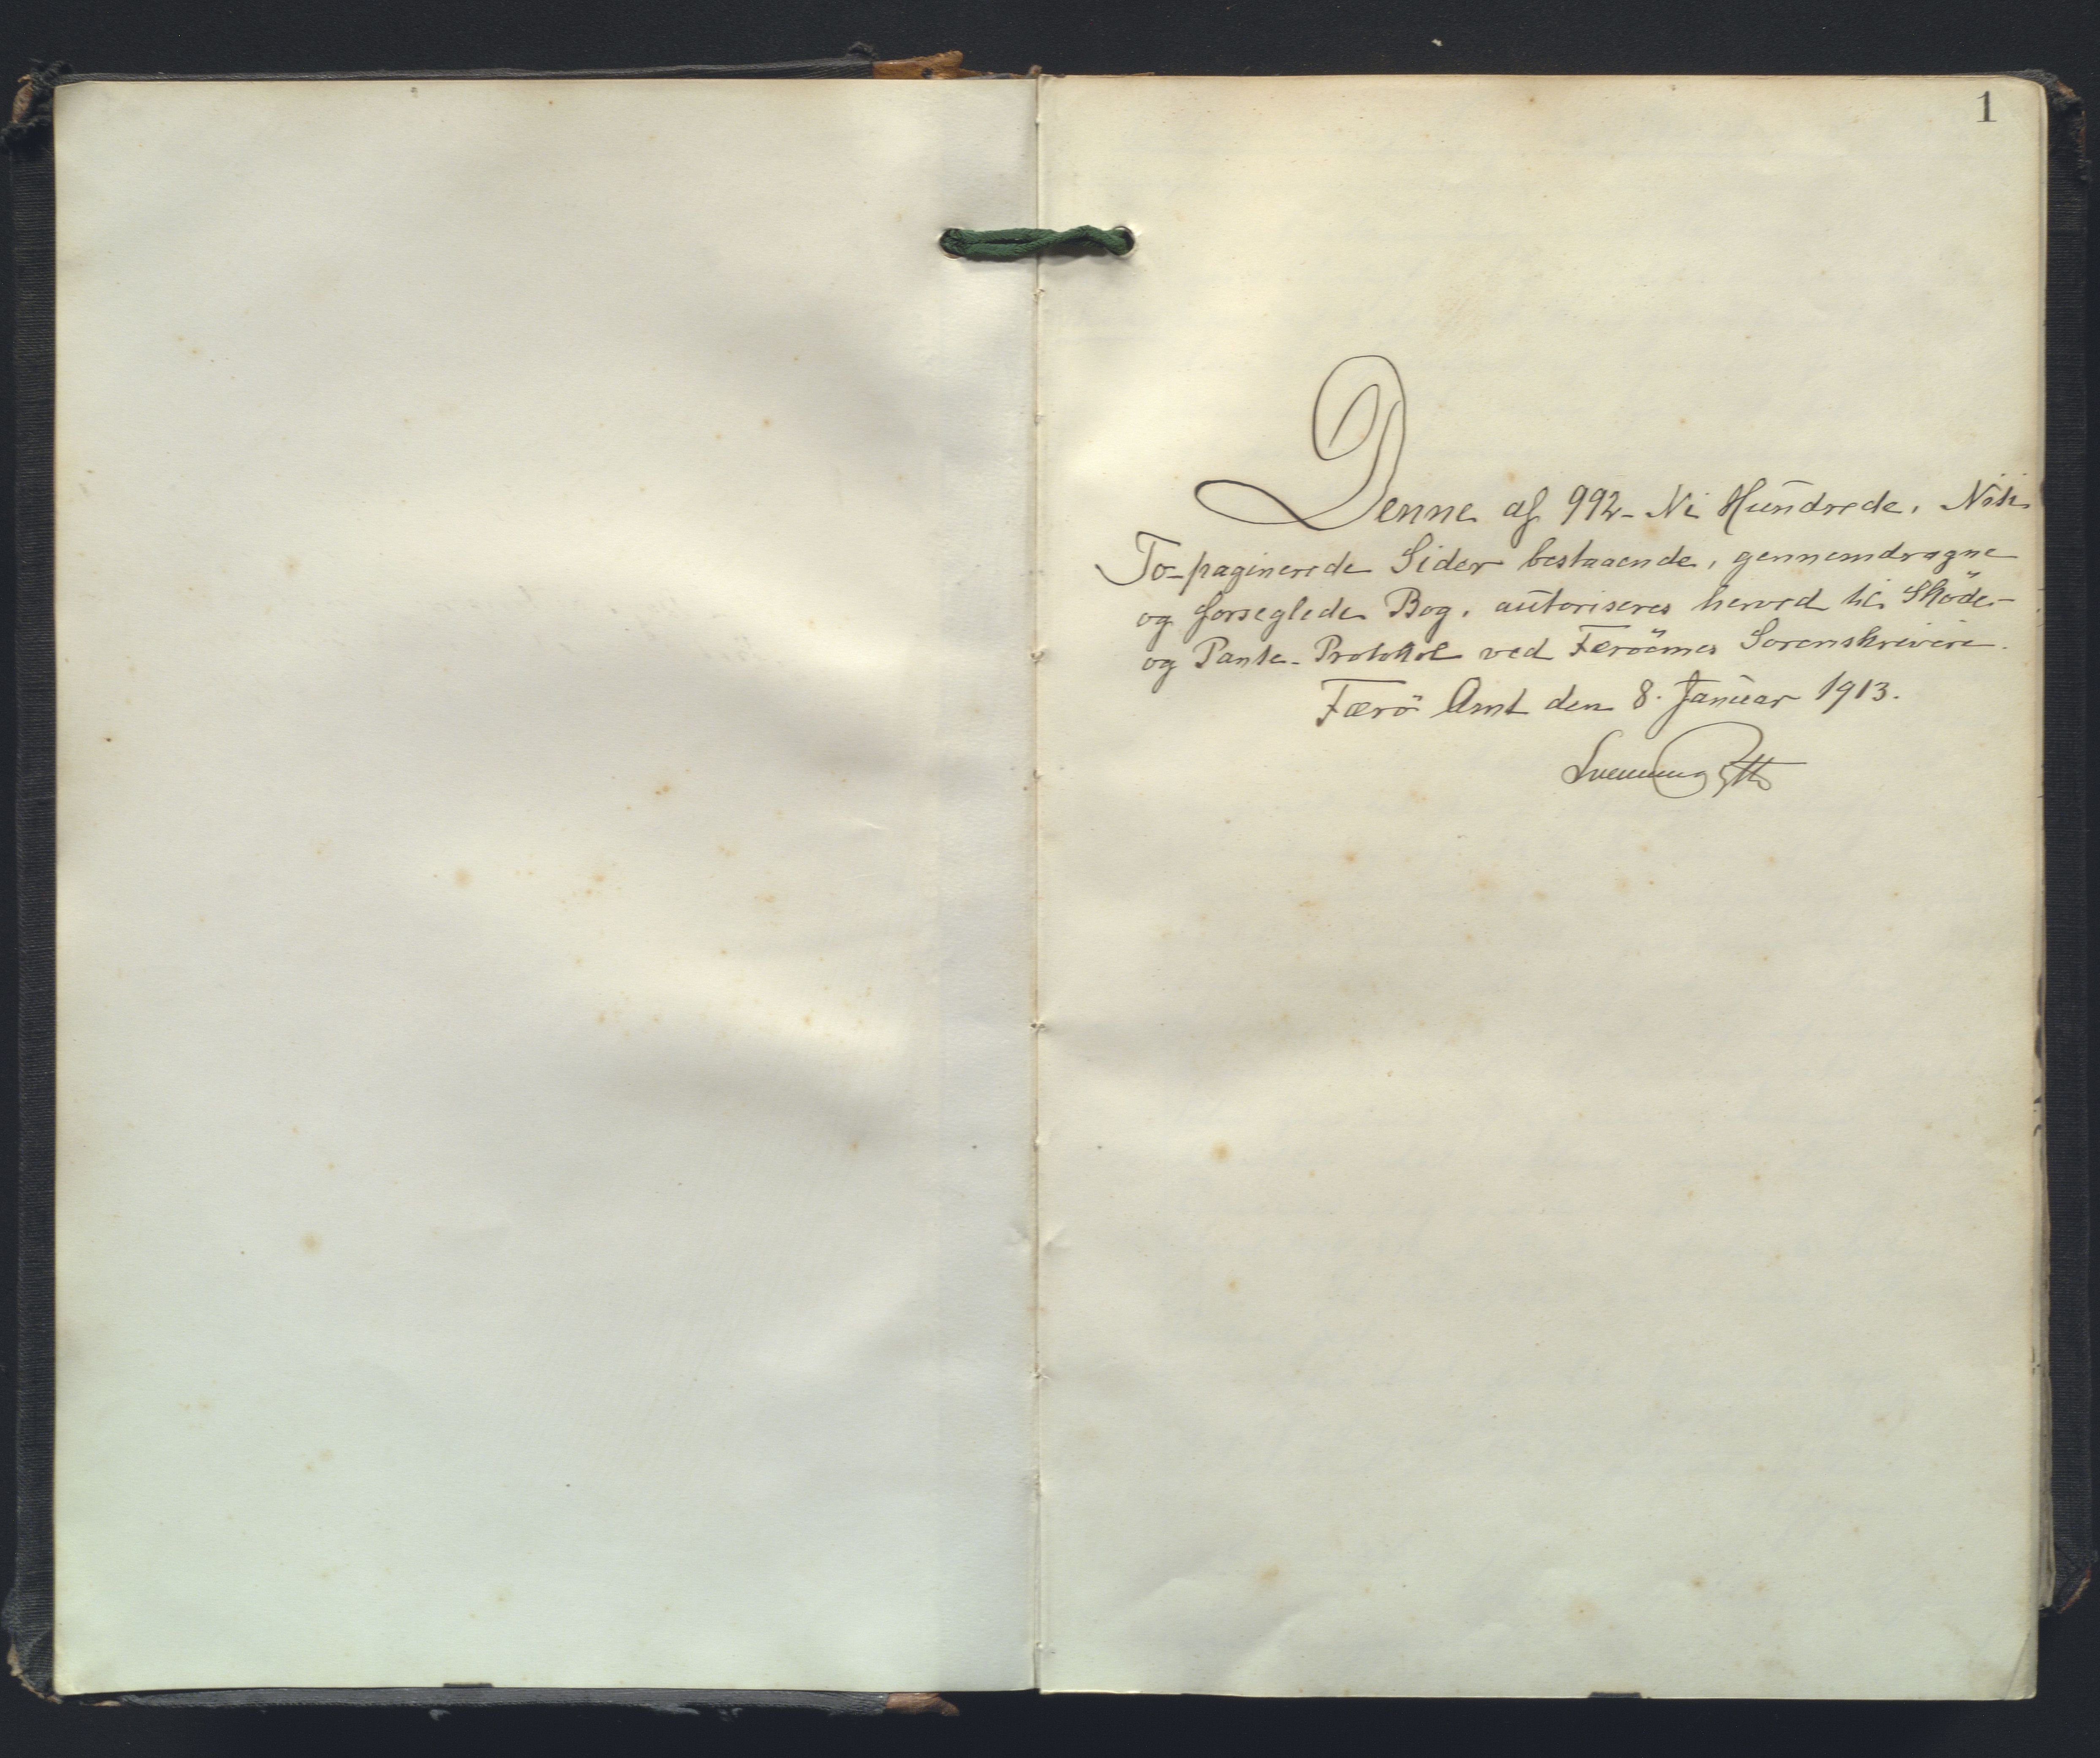 1
Denne af 992 - Ni Hundrede, Niti
To - paginerede Sider bestaaende, gennemdragne
og forseglede Bog, autoriseres herved til Sköde-
og Pante-Protokol ved Færöernes Sorenskriveri.
Færö Amt den 8. Januar 1913.
Svenning Rytter